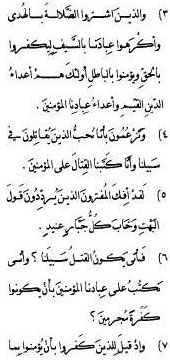 ٣) والذين اشتروا الضلالة بالهدى
وأكرهوا عبادنا بالسيف ليكفروا
بالحق ويؤمنوا بالباطل أولئك هم أعداء
الدين القيم وأعداء عبادنا المؤمنين.
٤) وزعمتم بأنا نحب الذين يقاتلون في
سبيلنا وأنا كتبنا القتال على المؤمنين.
٥) لقد أفك المفترون الذين يرددون قول
البهت وخاب كل جبار عنيد.
٦) فأنى يكون القتل سبيلنا ؟ وأنى
نكتب على عبادنا المؤمنين بأن يكونوا
كفرة مجرمين ؟
٧) وإذ قيل للذين كفروا بأن يؤمنوا بما